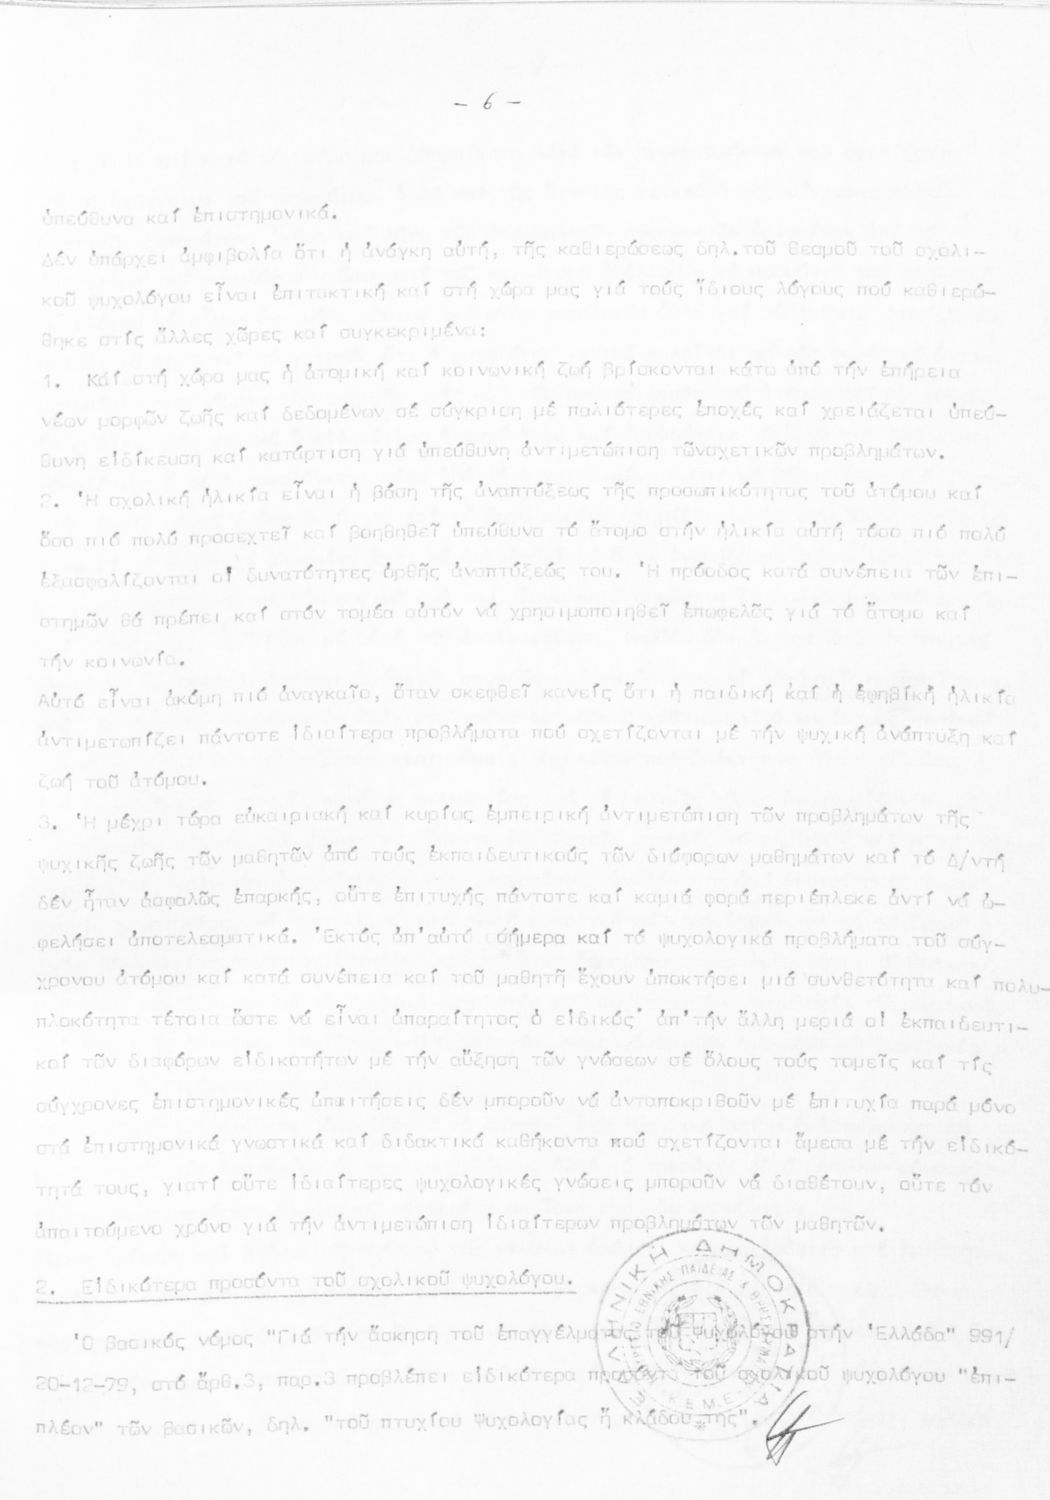 - 6 -
ὑπεύθυνα καί ἐπιστημονικά.
Δέν ὑπάρχει ἀμφιβολία ὅτι ἡ ἀνάγκη αὐτή, τῆς καθιερώσεως δηλ.τοῦ θεσμοῦ τοῦ σχολι-
κοῦ ψυχολόγου εἶναι ἐπιτακτική καί στή χώρα μας γιά τούς ἴδιους λόγους πού καθιερώ-
θηκε στίς ἄλλες χῶρες καί συγκεκριμένα:
1. Καί στή χώρα μας ἡ ἀτομική καί κοινωνική ζωή βρίσκονται κάτω ἀπό τήν ἐπήρεια
νέων μορφῶν ζωῆς καί δεδομένων σέ σύγκριση μέ παλιότερες ἐποχές καί χρειάζεται ὑπεύ-
θυνη εἰδίκευση καί κατάρτιση γιά ὑπεύθυνη ἀντιμετώπιση τῶνσχετικῶν προβλημάτων.
2. Ἡ σχολική ἡλικία εἶναι ἡ βάση τῆς ἀναπτύξεως τῆς προσωπικότητας τοῦ ἀτόμου καί
ὅσο πιό πολύ προσεχτεῖ καί βοηθηθεῖ ὑπεύθυνα τό ἄτομο στήν ἡλικία αὐτή τόσο πιό πολύ
ἐξασφαλίζονται οἱ δυνατότητες ὀρθῆς ἀναπτύξεώς του. Ἡ πρόοδος κατά συνέπεια τῶν ἐπι-
στημῶν θά πρέπει καί στόν τομέα αὐτόν νά χρησιμοποιηθεῖ ἐπωφελῶς γιά τό ἄτομο καί
τήν κοινωνία.
Αὐτό εἶναι ἀκόμη πιό ἀναγκαῖο, ὅταν σκεφθεῖ κανείς ὅτι ἡ παιδική καί ἡ ἐφηβική ἡλικία
ἀντιμετωπίζει πάντοτε ἰδιαίτερα προβλήματα πού σχετίζονται μέ τήν ψυχική ἀνάπτυξη καί
ζωή τοῦ ἀτόμου.
3. Ἡ μέχρι τώρα εὐκαιριακή καί κυρίως ἐμπειρική ἀντιμετώπιση τῶν προβλημάτων τῆς
ψυχικῆς ζωῆς τῶν μαθητῶν ἀπό τούς ἐκπαιδευτικούς τῶν διάφορων μαθημάτων καί τό Δ/ντή
δέν ἦταν ἀσφαλῶς ἐπαρκής, οὔτε ἐπιτυχής πάντοτε καί καμιά φορά περιέπλεκε ἀντί νά ὠ-
φελήσει ἀποτελεσματικά. Ἐκτός ἀπ'αὐτό σήμερα καί τά ψυχολογικά προβλήματα τοῦ σύγ-
χρονου ἀτόμου καί κατά συνέπεια καί τοῦ μαθητῆ ἔχουν ἀποκτήσει μιά συνθετότητα καί πολυ-
πλοκότητα τέτοια ὥστε νά εἶναι ἀπαραίτητος ὁ εἰδικός· ἀπ'τήν ἄλλη μεριά οἱ ἐκπαιδευτι-
κοί τῶν διαφόρων εἰδικοτήτων μέ τήν αὔξηση τῶν γνώσεων σέ ὅλους τούς τομεῖς καί τίς
σύγχρονες ἐπιστημονικές ἀπαιτήσεις δέν μποροῦν νά ἀνταποκριθοῦν μέ ἐπιτυχία παρά μόνο
στά ἐπιστημονικά γνωστικά καί διδακτικά καθήκοντα πού σχετίζονται ἄμεσα μέ τήν εἰδικό-
τητά τους, γιατί οὔτε ἰδιαίτερες ψυχολογικές γνώσεις μποροῦν νά διαθέτουν, οὔτε τόν
ἀπαιτούμενο χρόνο γιά τήν ἀντιμετώπιση ἰδιαίτερων προβλημάτων τῶν μαθητῶν.
2. Εἰδικότερα προσόντα τοῦ σχολικοῦ ψυχολόγου.
Ὁ βασικός νόμος "Γιά τήν ἄσκηση τοῦ ἐπαγγέλματος τοῦ ψυχολόγου στήν Ἑλλάδα" 991/
20-12-79, στό ἄρθ.3, παρ.3 προβλέπει εἰδικότερα προσόντα τοῦ σχολικοῦ ψυχολόγου "ἐπι-
πλέον" τῶν βασικῶν, δηλ. "τοῦ πτυχίου Ψυχολογίας ἤ κλάδου της".
ΕΛΛΗΝΙΚΗ ΔΗΜΟΚΡΑΤΙΑ
ΕΘΝΙΚΗΣ ΠΑΙΔΕΙΑΣ & ΘΡΗΣΚΕΥΜΑΤΩΝ
Κ.Ε.Μ.Ε.